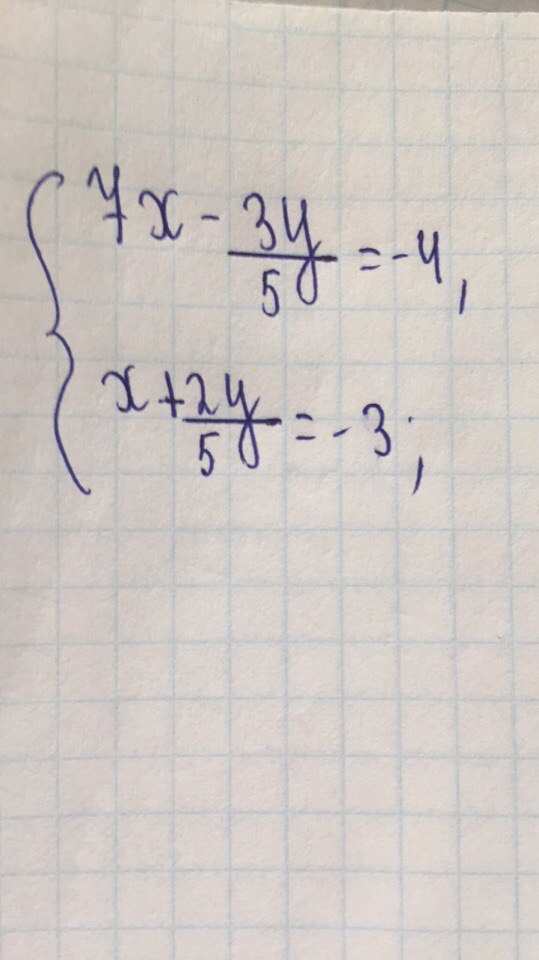 7x - 3y/5 = -4,
x + 2y/5 = -3;